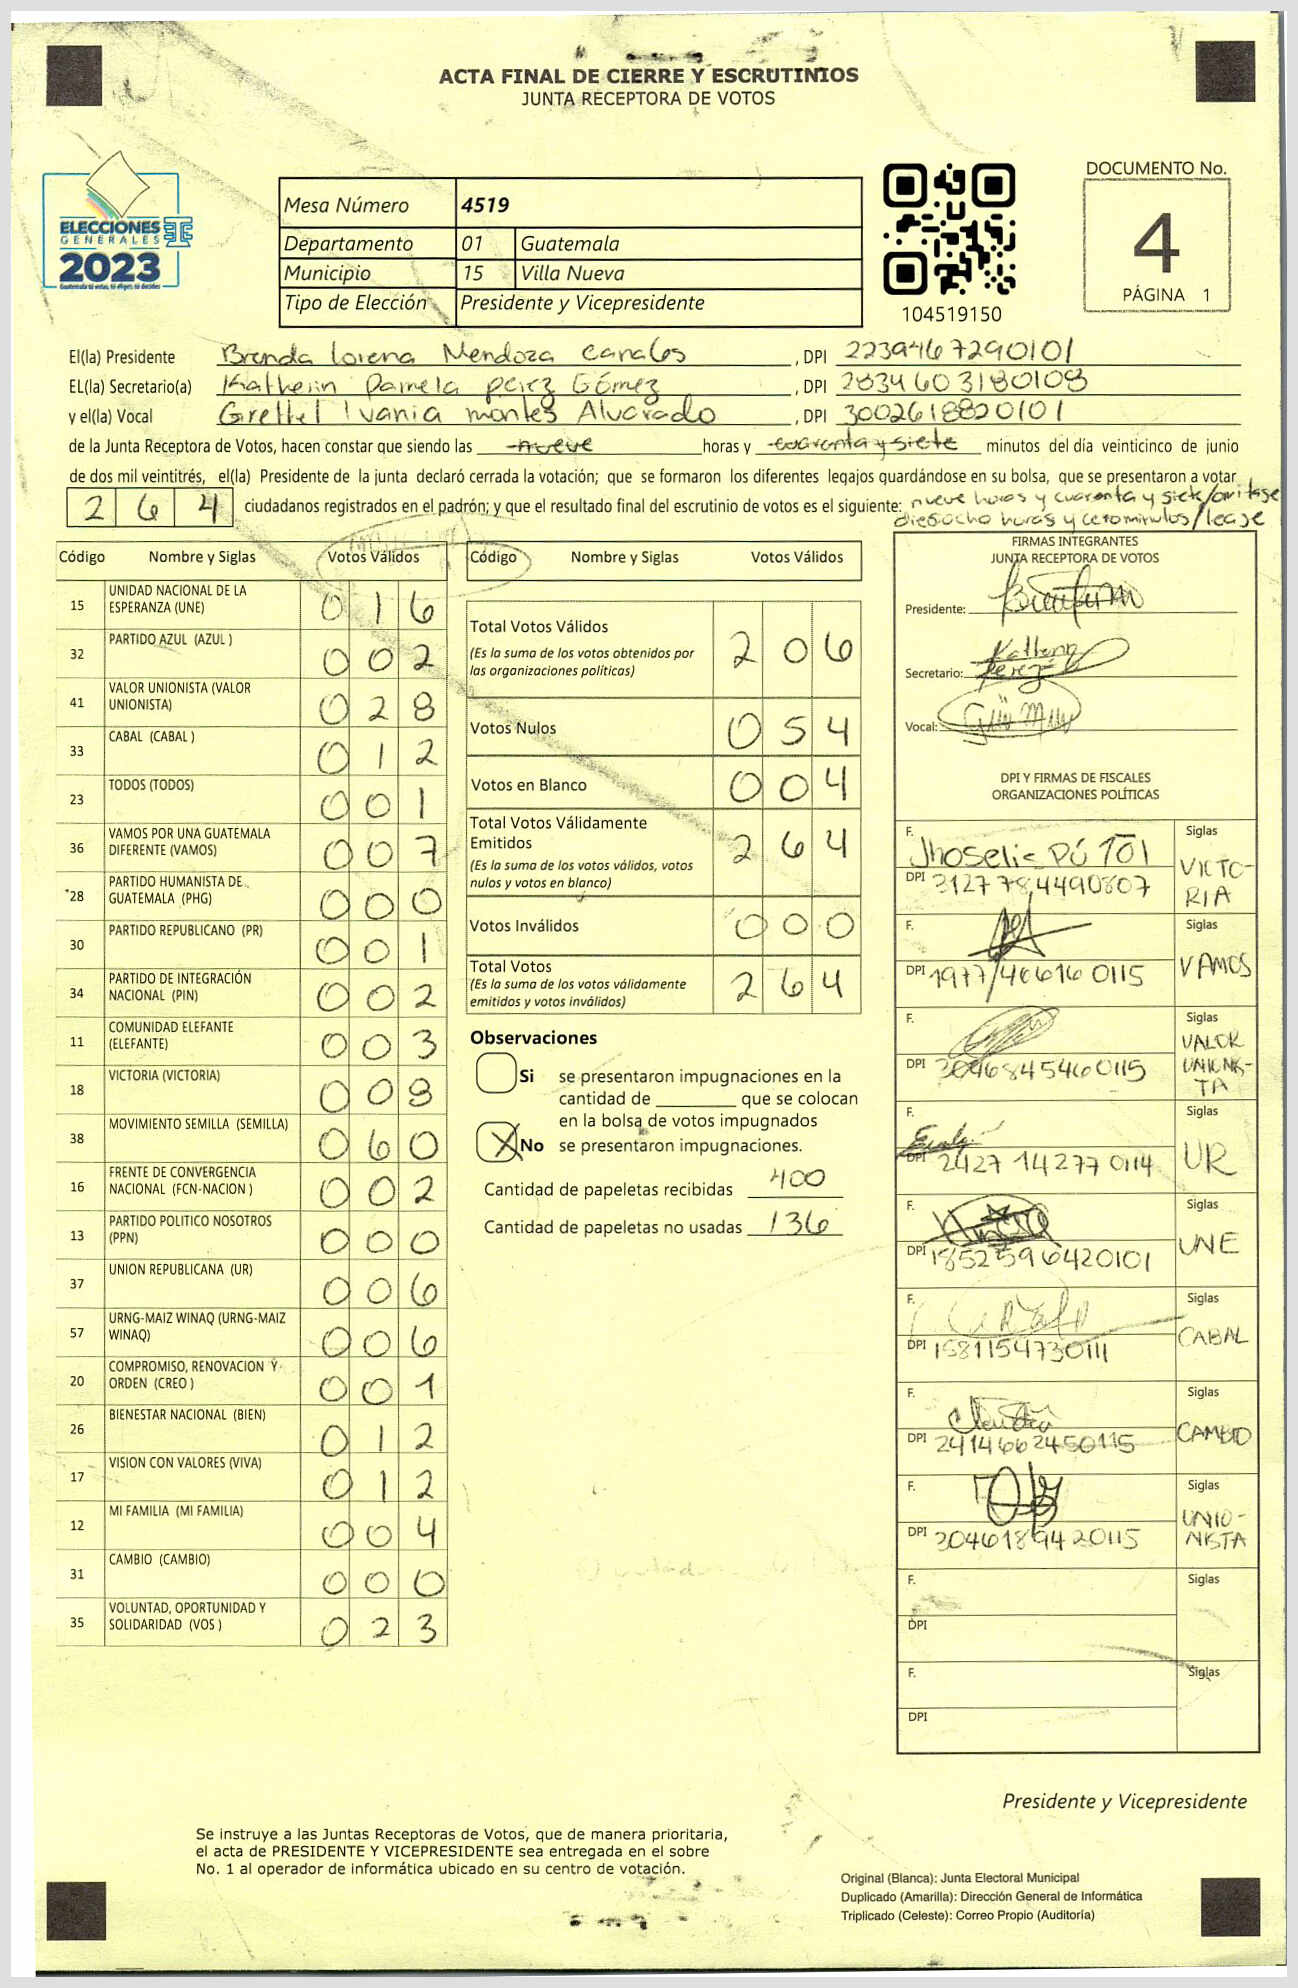 ACTA FINAL DE CIERRE Y ESCRUTINIOS
JUNTA RECEPTORA DE VOTOS
ELECCIONES
GENERALES
2023
Guatemala tú votas, tú eliges, tú decides
Mesa Número 4519
Departamento 01 Guatemala
Municipio 15 Villa Nueva
Tipo de Elección Presidente y Vicepresidente
104519150
DOCUMENTO No.
4
PÁGINA 1
El(la) Presidente Brenda Lorena Mendoza Canales , DPI 2239467290101
EL(la) Secretario(a) Katherin Pamela perez Gómez , DPI 2834603180108
y el(la) Vocal Grettel Ivania montes Alvarado , DPI 3002618820101
de la Junta Receptora de Votos, hacen constar que siendo las nueve horas y cuarenta y siete minutos del día veinticinco de junio
de dos mil veintitrés, el(la) Presidente de la junta declaró cerrada la votación; que se formaron los diferentes legajos guardándose en su bolsa, que se presentaron a votar
264 ciudadanos registrados en el padrón; y que el resultado final del escrutinio de votos es el siguiente: nueve horas y cuarenta y siete/omitase
dieciocho horas y cero minutos/lease
Código Nombre y Siglas Votos Válidos
15 UNIDAD NACIONAL DE LA ESPERANZA (UNE) 016
32 PARTIDO AZUL (AZUL ) 002
41 VALOR UNIONISTA (VALOR UNIONISTA) 028
33 CABAL (CABAL ) 012
23 TODOS (TODOS) 001
36 VAMOS POR UNA GUATEMALA DIFERENTE (VAMOS) 007
28 PARTIDO HUMANISTA DE GUATEMALA (PHG) 000
30 PARTIDO REPUBLICANO (PR) 001
34 PARTIDO DE INTEGRACIÓN NACIONAL (PIN) 002
11 COMUNIDAD ELEFANTE (ELEFANTE) 003
18 VICTORIA (VICTORIA) 008
38 MOVIMIENTO SEMILLA (SEMILLA) 060
16 FRENTE DE CONVERGENCIA NACIONAL (FCN-NACION ) 002
13 PARTIDO POLITICO NOSOTROS (PPN) 000
37 UNION REPUBLICANA (UR) 006
57 URNG-MAIZ WINAQ (URNG-MAIZ WINAQ) 006
20 COMPROMISO, RENOVACION Y ORDEN (CREO ) 001
26 BIENESTAR NACIONAL (BIEN) 012
17 VISION CON VALORES (VIVA) 012
12 MI FAMILIA (MI FAMILIA) 004
31 CAMBIO (CAMBIO) 000
35 VOLUNTAD, OPORTUNIDAD Y SOLIDARIDAD (VOS ) 023
Código Nombre y Siglas Votos Válidos
Total Votos Válidos 206
(Es la suma de los votos obtenidos por
las organizaciones políticas)
Votos Nulos 054
Votos en Blanco 004
Total Votos Válidamente
Emitidos 264
(Es la suma de los votos válidos, votos
nulos y votos en blanco)
Votos Inválidos 000
Total Votos 264
(Es la suma de los votos válidamente
emitidos y votos inválidos)
Observaciones
Si se presentaron impugnaciones en la
cantidad de que se colocan
en la bolsa de votos impugnados
X No se presentaron impugnaciones.
Cantidad de papeletas recibidas 400
Cantidad de papeletas no usadas 136
FIRMAS INTEGRANTES
JUNTA RECEPTORA DE VOTOS
Presidente:
Secretario: Katherin Perez
Vocal:
DPI Y FIRMAS DE FISCALES
ORGANIZACIONES POLÍTICAS
F. Jhoselis Siglas
DPI 3127784490807 VICTORIA
F. Siglas
DPI 1977/46616 0115 VAMOS
F. Siglas
DPI 3046845460115 VALOR UNIONISTA
F. Siglas
DPI 2427 14277 0114 UR
F. Siglas
DPI 1852596420101 UNE
F. Siglas
DPI 1581154730111 CABAL
F. Siglas
DPI 2414662450115 CAMBIO
F. Siglas
DPI 3046189420115 UNIONISTA
F. Siglas
DPI
F. Siglas
DPI
Presidente y Vicepresidente
Se instruye a las Juntas Receptoras de Votos, que de manera prioritaria,
el acta de PRESIDENTE Y VICEPRESIDENTE sea entregada en el sobre
No. 1 al operador de informática ubicado en su centro de votación.
Original (Blanca): Junta Electoral Municipal
Duplicado (Amarilla): Dirección General de Informática
Triplicado (Celeste): Correo Propio (Auditoría)